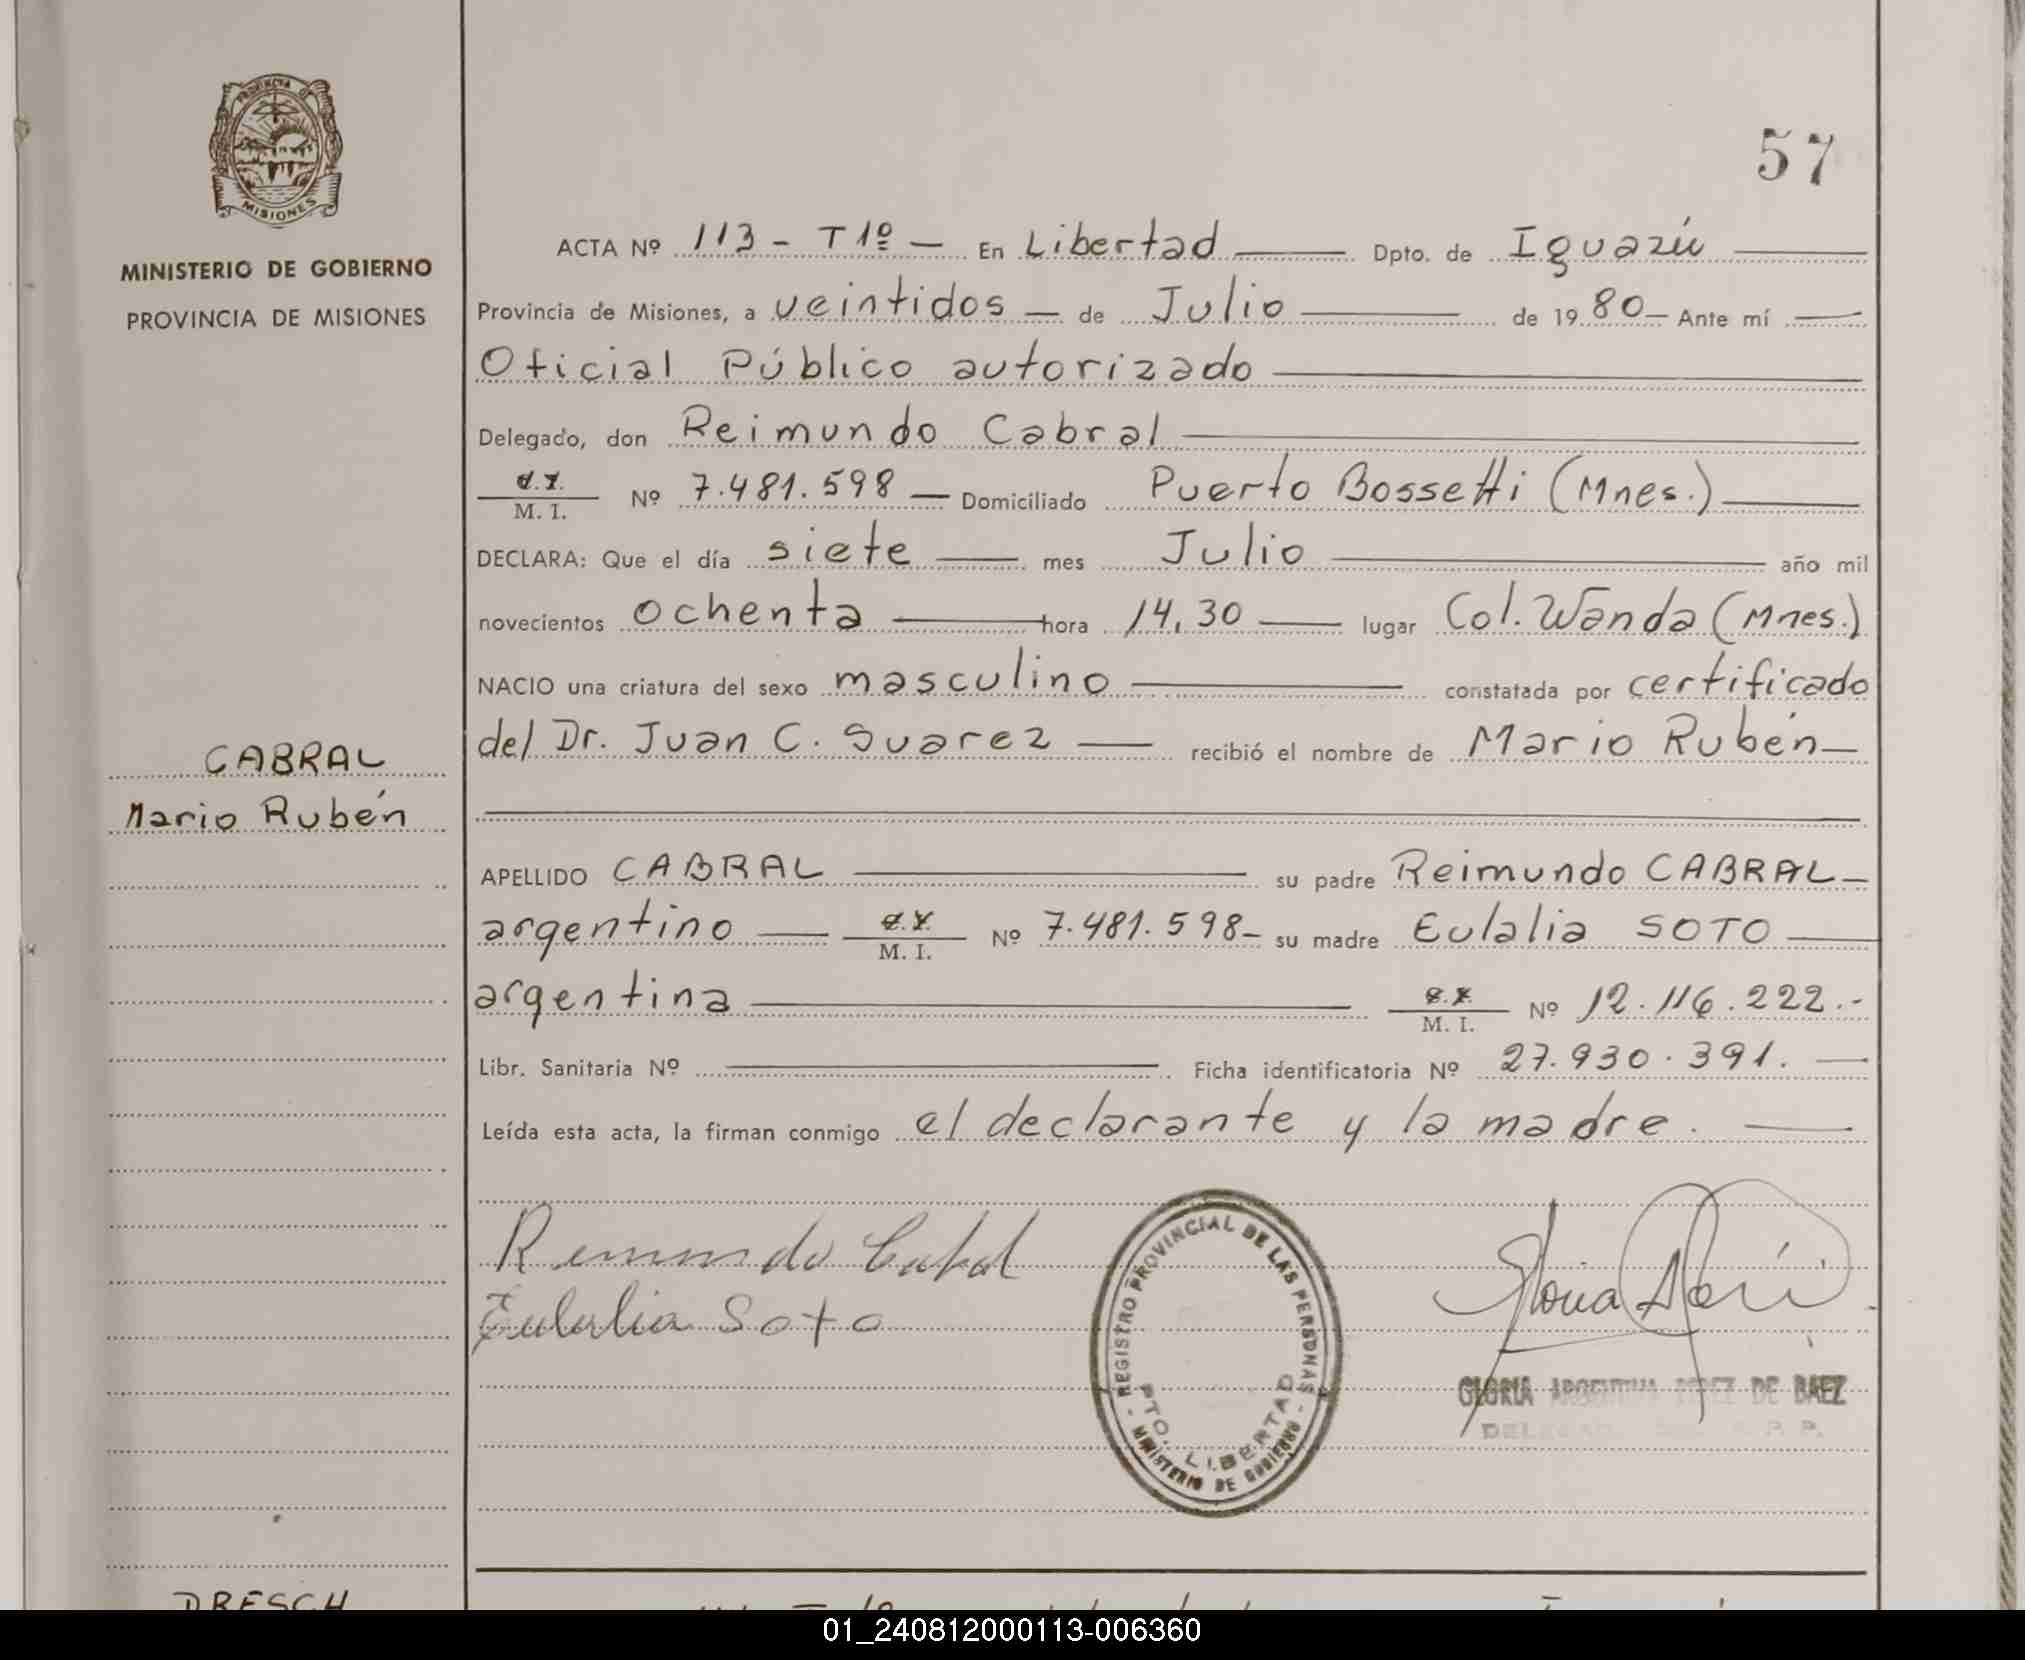 PROVINCIA
MISIONES
MINISTERIO DE GOBIERNO
PROVINCIA DE MISIONES
CABRAL
Mario Rubén
DRESCH
57
ACTA Nº 113 - T 1º - En Libertad Dpto. de Iguazú
Provincia de Misiones, a veintidos de Julio de 1980 Ante mí
Oficial Público autorizado
Delegado, don Reimundo Cabral
M. I. Nº 7.481.598 Domiciliado Puerto Bossetti (Mnes.)
DECLARA: Que el día siete mes Julio año mil
novecientos ochenta hora 14,30 lugar Col. Wanda (Mnes.)
NACIO una criatura del sexo masculino constatada por certificado
del Dr. Juan C. Suarez recibió el nombre de Mario Rubén
APELLIDO CABRAL su padre Reimundo CABRAL
argentino M. I. Nº 7.481.598- su madre Eulalia SOTO
argentina M. I. Nº 12.116.222.-
Libr. Sanitaria Nº Ficha identificatoria Nº 27.930.391.
Leída esta acta, la firman conmigo el declarante y la madre.
Eulalia Soto
REGISTRO PROVINCIAL DE LAS PERSONAS
PTO. LIBERTAD
- MINISTERIO DE GOBIERNO -
GLORIA ARGENTINA DE BAEZ
01_240812000113-006360